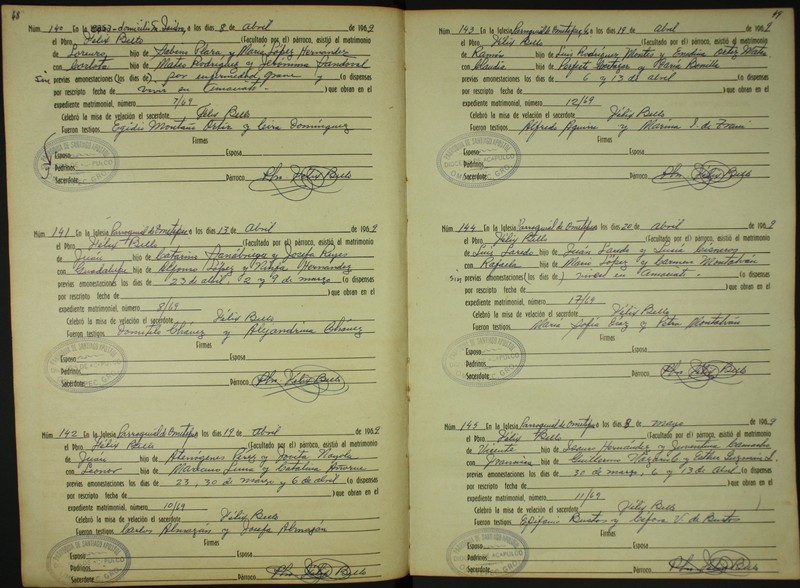 48
Núm. 140 En la a los días 8 de abril de 1969
el Pbro. Félix Bello (Facultado por el) párroco, asistió al matrimonio
de Lorenzo hijo de y María López Hernández
con hija de Mateo Rodríguez y Sandoval
Sin previas amonestaciones (los días de) por enfermedad grave y (o dispensas
por rescripto fecha de vivir en amasiato. ) que obran en el
expediente matrimonial, número 7/69
Celebró la misa de velación el sacerdote Félix Bello
Fueron testigos Egidio Montaño Ortiz y Domínguez
Firmas
Esposo Esposa
Padrinos
Sacerdote Párroco Pbro. Félix Bello
Núm. 141 En la Iglesia Parroquial de Ometepec a los días 13 de abril de 1969
el Pbro. Félix Bello (Facultado por el) párroco, asistió al matrimonio
de Juan hijo de y Josefa Reyes
con Guadalupe hija de Alfonso López y Hernández
previas amonestaciones los días de 23 de abril, 2 y 9 de marzo (o dispensas
por rescripto fecha de ) que obran en el
expediente matrimonial, número 8/69
Celebró la misa de velación el sacerdote Félix Bello
Fueron testigos Chávez y Alejandrina Chávez
Firmas
Esposo Esposa
Padrinos
Sacerdote Párroco Pbro. Félix Bello
Núm. 142 En la Iglesia Parroquial de Ometepec a los días 19 de abril de 1969
el Pbro. Félix Bello (Facultado por el) párroco, asistió al matrimonio
de Juan hijo de Pérez y
con Leonor hija de y Catalina
previas amonestaciones los días de 23, 30 de marzo y 6 de abril (o dispensas
por rescripto fecha de ) que obran en el
expediente matrimonial, número 10/69
Celebró la misa de velación el sacerdote Félix Bello
Fueron testigos Carlos Almazán y Josefa Almazán
Firmas
Esposo Esposa
Padrinos
Sacerdote Párroco Pbro. Félix Bello
49
Núm. 143 En la Iglesia Parroquial de Ometepec a los días 19 de abril de 1969
el Pbro. Félix Bello (Facultado por el) párroco, asistió al matrimonio
de Ramón hijo de Luis Rodríguez Montes y Ortiz
con Claudia hija de y María Bonilla
previas amonestaciones los días de 6 y 13 de abril (o dispensas
por rescripto fecha de ) que obran en el
expediente matrimonial, número 12/69
Celebró la misa de velación el sacerdote Félix Bello
Fueron testigos Alfredo Aguirre y Marina
Firmas
Esposo Esposa
Padrinos
Sacerdote Párroco Pbro. Félix Bello
Núm. 144 En la Iglesia Parroquial de Ometepec a los días 20 de abril de 1969
el Pbro. Félix Bello (Facultado por el) párroco, asistió al matrimonio
de Luis hijo de Juan y Cisneros
con Rafaela hija de López y Carmen Montalván
Sin previas amonestaciones (los días de) vivir en amasiato. (o dispensas
por rescripto fecha de ) que obran en el
expediente matrimonial, número 17/69
Celebró la misa de velación el sacerdote Félix Bello
Fueron testigos Sofía Díaz y Petra Montalván
Firmas
Esposo Esposa
Padrinos
Sacerdote Párroco Pbro. Félix Bello
Núm. 145 En la Iglesia Parroquial de Ometepec a los días 8 de mayo de 1969
el Pbro. Félix Bello (Facultado por el) párroco, asistió al matrimonio
de Vicente hijo de Hernández y
con hija de Guillermo y Esther Guzmán
previas amonestaciones los días de 30 de marzo, 6 y 13 de abril (o dispensas
por rescripto fecha de ) que obran en el
expediente matrimonial, número 11/69
Celebró la misa de velación el sacerdote Félix Bello
Fueron testigos Epifanio Bustos y de Bustos
Firmas
Esposo Esposa
Padrinos
Sacerdote Párroco Pbro. Félix Bello